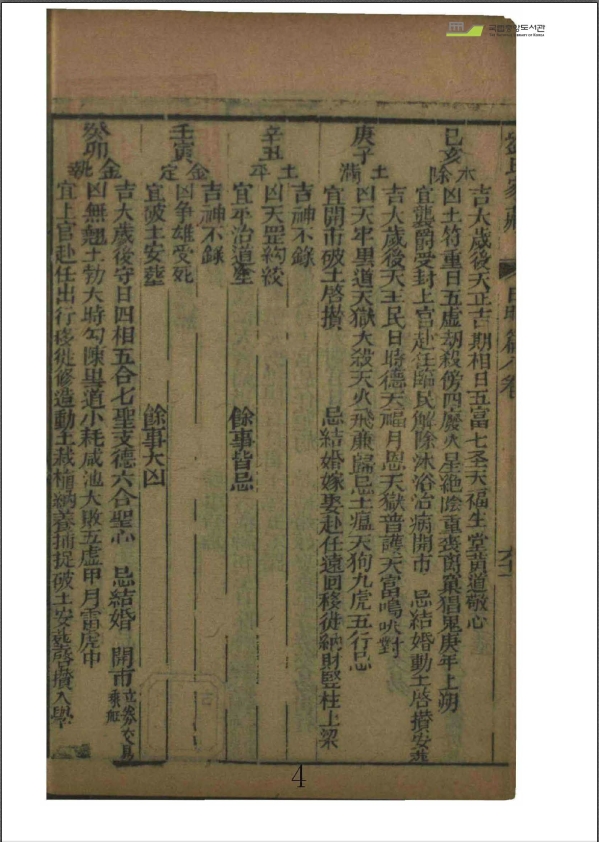 국립중앙도서관
THE NATIONAL LIBRARY OF KOREA
己亥 水除
吉大歲後天正吉期相日五富七圣天福生堂黃道敬心
凶土符重日五虛刼殺傍四廢火星絶陰重喪离窠猖鬼庚年上朔
宜襲爵受封上官赴任臨民解除沐浴治病開市 忌結婚動土啓攅安葬
庚子 土滿
吉大歲後天王民日時德天福月恩天獄普護天富鳴吠對
凶天牢黑道天獄大殺天火飛廉歸忌土瘟天狗九虎五行忌
宜開市破土啓攅 忌結婚嫁娶赴任遠回移徙納財竪柱上梁
辛丑 土平
吉神不錄
凶天罡勾絞
宜平治道塗 餘事皆忌
壬寅 金定
吉神不錄
凶争雄受死
宜破土安葬 餘事大凶
癸卯 金執
吉大歲後守日四相五合七聖支德六合聖心 忌結婚 開市立券交易乘船
凶無翹土勃大時勾陳黑道小耗咸池大敗五虛甲月雷虎中
宜上官赴任出行移徙修造動土栽植納養捕捉破土安葬啓攅入學
4